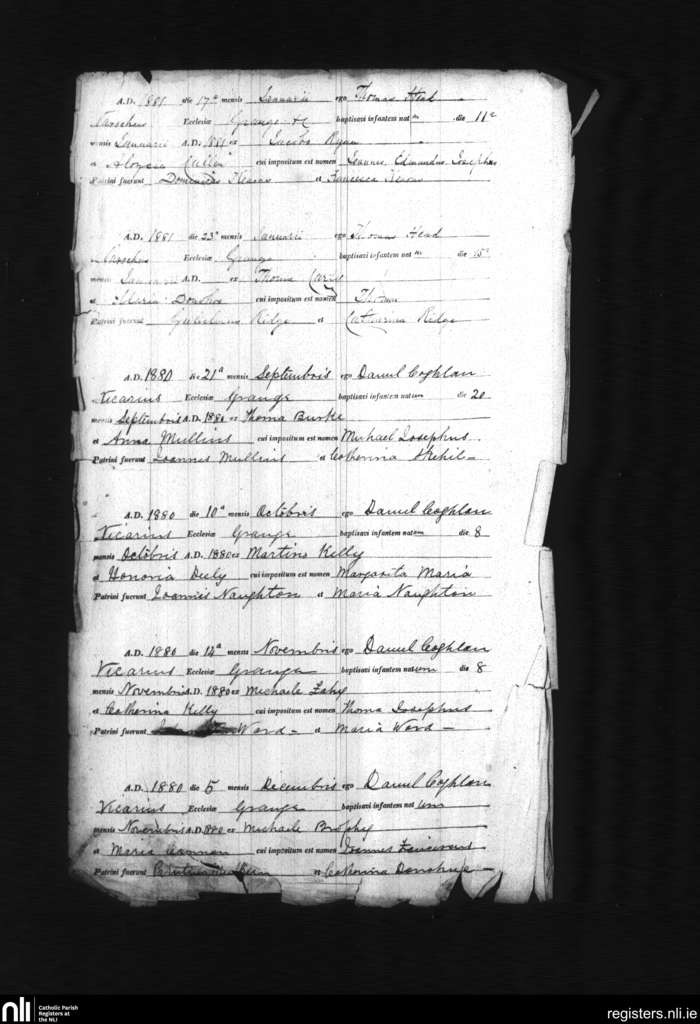 A.D. 1881 die 17a mensis Januarii ego Thomas Head
Parochus Ecclesiæ Grange &c baptisavi infantem nat die 11a
mensis Januarii A.D. 1881 ex Jacobo Ryan
et Aloysia cui impositum est nomen Joannes Edmundus Josephus
Patrini fuerunt Dominicus et Francesca
A.D. 1881 die 23a mensis Januarii ego Thomas Head
Parochus Ecclesiæ Grange baptisavi infantem nat die 15a
mensis Januarii A.D. ex Thoma
et Maria Donohoe cui impositum est nomen Thomam
Patrini fuerunt Gulielmus Ridge et Catharina Ridge
A.D. 1880 die 21a mensis Septembris ego Daniel Coghlan
Vicarius Ecclesiæ Grange baptisavi infantem natum die 20
mensis Septembris A.D. 1880 ex Thoma Burke
et Anna Mullins cui impositum est nomen Michael Josephus
Patrini fuerunt Joannes Mullins et Catherina
A.D. 1880 die 10a mensis Octobris ego Daniel Coghlan
Vicarius Ecclesiæ Grange baptisavi infantem natam die 8
mensis Octobris A.D. 1880 ex Martino Kelly
et Honoria Duly cui impositum est nomen Margarita Maria
Patrini fuerunt Joannes Naughton et Maria Naughton
A.D. 1880 die 14a mensis Novembris ego Daniel Coghlan
Vicarius Ecclesiæ Grange baptisavi infantem natum die 8
mensis Novembris A.D. 1880 ex Michaele Fahy
et Catherina Kelly cui impositum est nomen Thoma Josephus
Patrini fuerunt Ward et Maria Ward
A.D. 1880 die 5 mensis Decembris ego Daniel Coghlan
Vicarius Ecclesiæ Grange baptisavi infantem natum
mensis Novembris A.D. 1880 ex Michaele Brophy
et Maria Cannon cui impositum est nomen Joannes
Patrini fuerunt et Catherina Donohue
nli Catholic Parish
Registers at
the NLI
registers.nli.ie